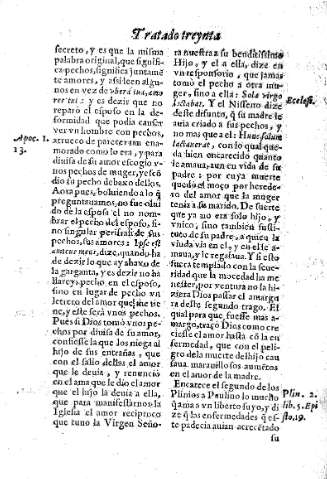 Tratado treynta
secreto, y es que la misma
palabra original, que signifi-
ca pechos, significa juntamē
te amores, y assi leen algu-
nos en vez de vbera tua, amo
res tui: y es dezir que no
reparò el esposo en la de-
formidad que podia causar
ver vn hombre con pechos,
a trueco de parecer tan ena-
morado como lo era, y para
diuisa de su amor escogio v-
nos pechos de muger, y escō
dio su pecho debaxo dellos.
Aora pues, boluiendo a lo q̄
preguntauamos, no fue olui
do de la esposa el no nom-
brar el pecho del esposo, si-
no singular perifrasi de sus
pechos, sus amores: Ipse est
dize, quando ha
de dezir lo que ay abaxo de
la garganta, y es dezir no ha
llareys pecho en el esposo,
sino en lugar de pecho vn
letrero del amor que me tie
ne, y este serà vnos pechos.
Pues si Dios tomò vnos pe-
chos por diuisa de su amor,
confiesse la que los niega al
hijo de sus entrañas, que
con el falso dellos el amor
que le deuia, y renunciò
en el ama que le dio el amor
que el hijo la deuia a ella,
que para manifestarnos la
Iglesia el amor reciproco
que tuuo la Virgen Seño-
Apoc. 1.
13.
ra nuestra a su benditissimo
Hijo, y el a ella, dize en
vn responsorio, que jamas
tomò el pecho a otra mu-
ger, sino a ella: Sola virgo
lactabat. Y el Nisseno dize
deste difunto, q̄ su madre le
auia criado a sus pechos, y
no mas que a el: Hunc solum
lactauerat, con lo qual que-
da bien encarecido quanto
le amaua, aun en vida de su
padre: por cuya muerte
quedò el moço por herede-
ro del amor que la muger
tenia a su marido. De suerte
que ya no era solo hijo, y
vnico, sino tambien susti-
tuto de su padre, a quien la
viuda via en el, y en el le a-
maua, y le regalaua. Y si esto
fuera templado con la seue-
ridad que la mocedad ha me
nester, por ventura no la hi-
ziera Dios passar el amargu
ra deste segundo trago. El
qual para que fuesse mas a-
margo, traçò Dios como cre
ciesse el amor hasta cò la en
fermedad, que con el peli-
gro de la muerte del hijo cau
saua marauillosos aumētos
en el amor de la madre.
Encarece el segundo de los
Plinios a Paulino lo mucho
q̄ ama a vn liberto suyo, y di
ze q̄ las enfermedades q̄ es-
te padecia auian acrecētado
su
Ecclesi.
Plin. 2.
lib. 5. Epi
sto. 19.